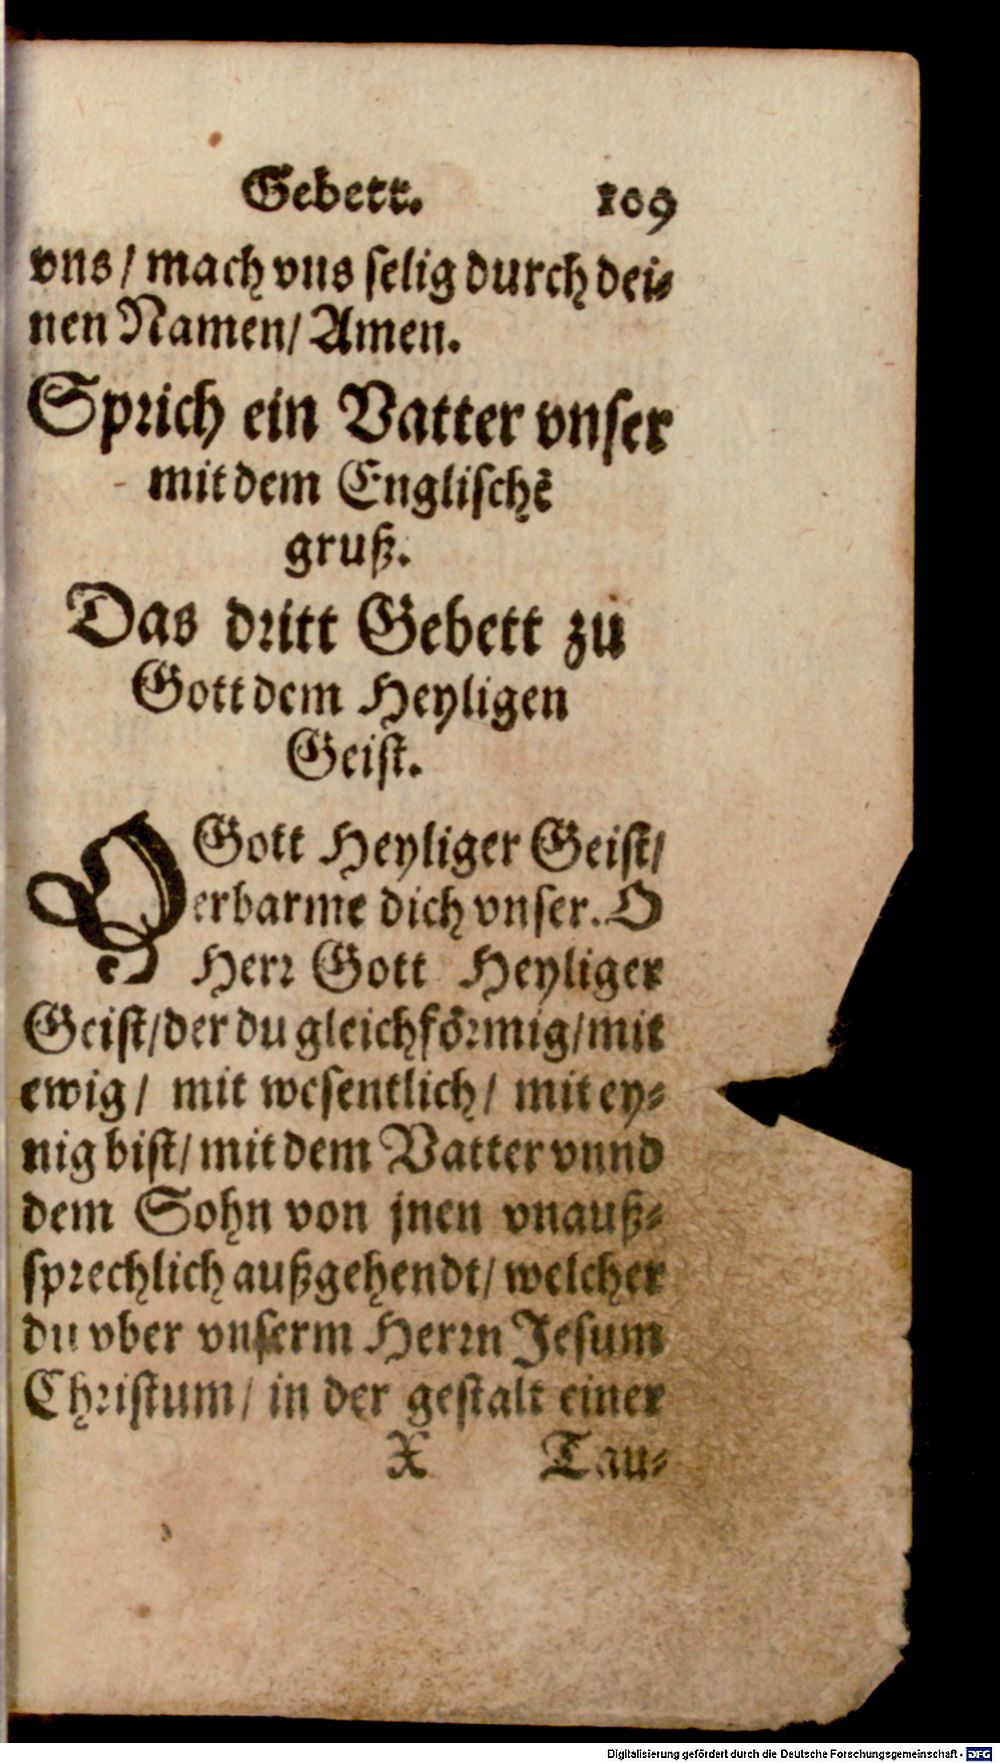 Gebett. 109
vns/ mach vns selig durch dei⸗
nen Namen/ Amen.
Sprich ein Vatter vnser
mit dem Englischẽ
gruß.
Das dritt Gebett zu
Gott dem Heyligen
Geist.
O Gott Heyliger Geist/
erbarme dich vnser. O
Herr Gott Heyliger
Geist/ der du gleichförmig/ mit
ewig/ mit wesentlich/ mit ey⸗
nig bist/ mit dem Vatter vnnd
dem Sohn von jnen vnauß⸗
sprechlich außgehendt/ welcher
du vber vnserm Herrn Jesum
Christum/ in der gestalt einer
X Tau⸗
Digitalisierung gefördert durch die Deutsche Forschungsgemeinschaft - DFG